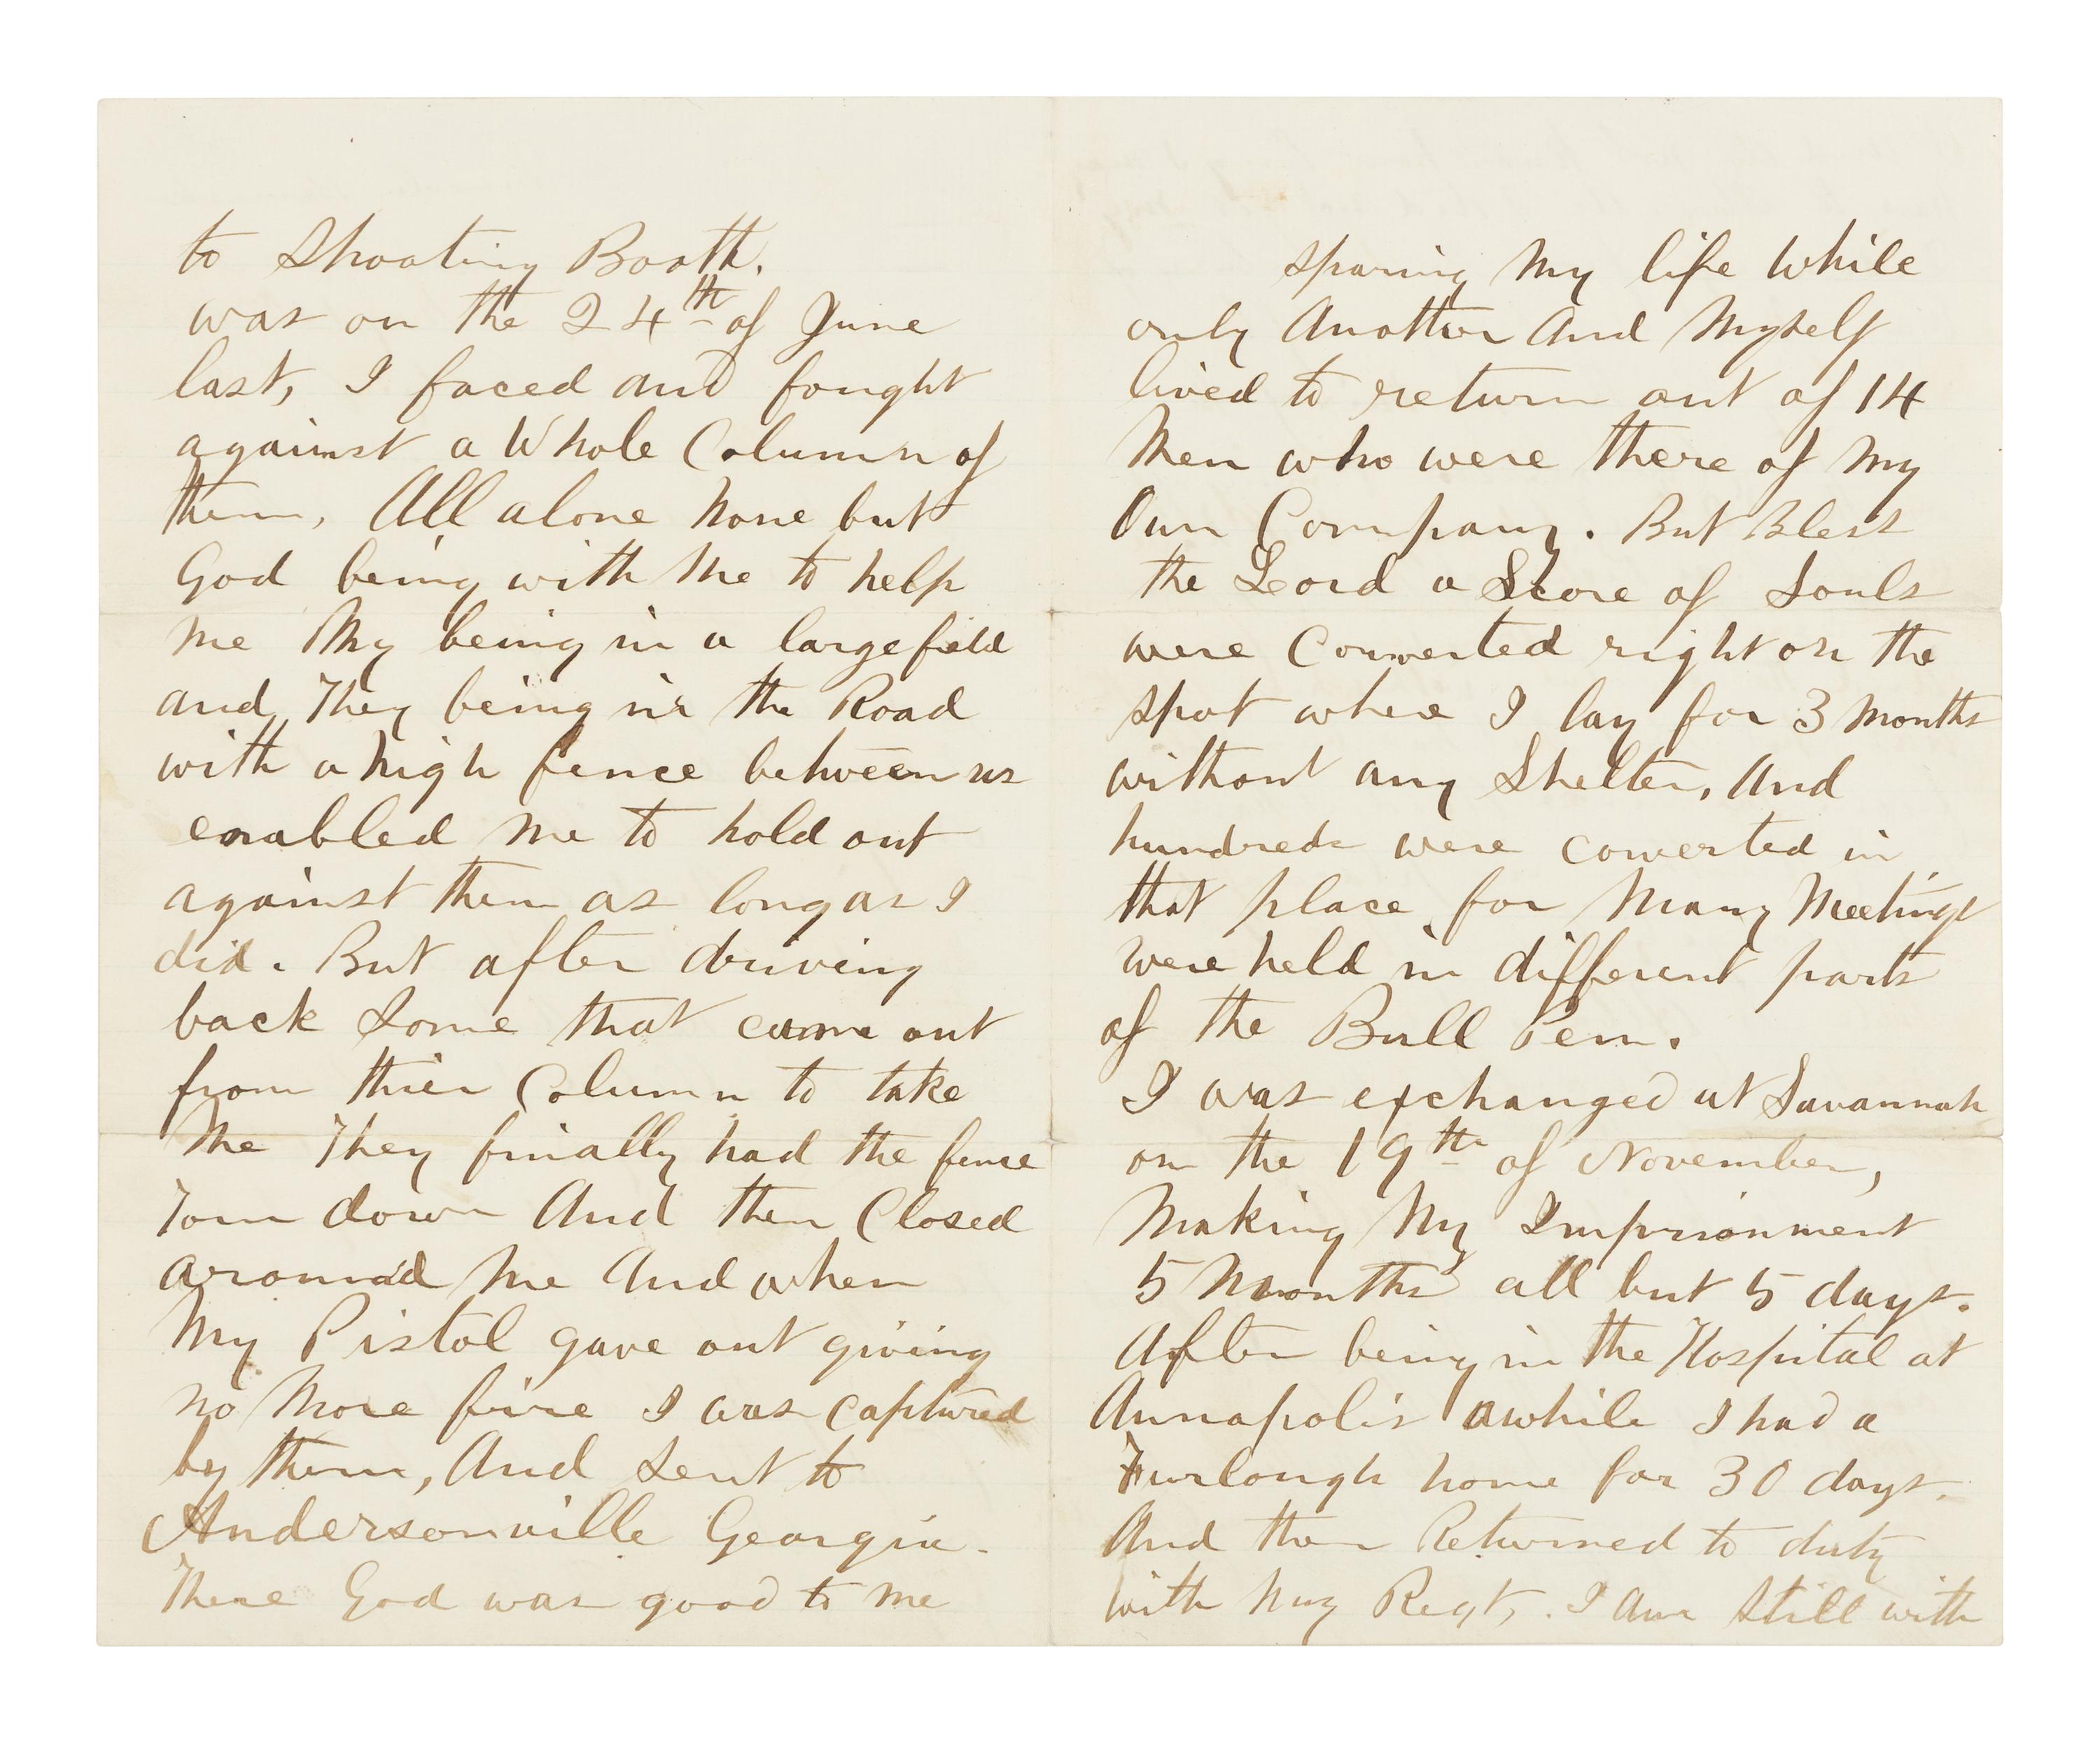 to Shooting Booth.
was on the 24th of June
last, I faced and fought
against a Whole Column of
them, All alone None but
God being with Me to help
me My being in a large field
and They being in the Road
with a high fence between us
enabled me to hold out
against them as long as I
did. But after driving
back Some that came out
from thier Column to take
Me They finially had the fence
Torn down And then Closed
around Me And when
My Pistol gave out giving
no More fire I was captured
by them, And Sent to
Andersonville Georgia.
There God was good to me
sparing My life While
only Another And Myself
lived to return out of 14
Men who were there of My
Own Company. But Bless
the Leord a Score of Souls
were Converted right on the
spot where I lay for 3 Months
without any Shelter, And
hundreds were converted in
that place for Many Meetings
were held in different parts
of the Bull Pen.
I was exchanged at Savannah
on the 19th of November,
Making My Imprisonment
5 Months all but 5 days.
After being in the Hospital at
Annapolis awhile I had a
Furlough home for 30 days.
And then Returned to duty
with My Regt, . I am still with